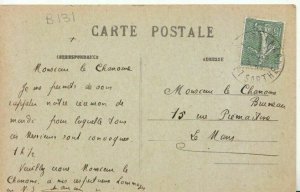 B131
CARTE POSTALE
CORRESPONDANCE
ADRESSE
SARTHE
Monsieur le Chanoine
Je me permets de vous
rappeler notre réunion de
mardi pour laquelle tous
ces Messieurs sont convoqués
1 h ½
Veuillez croire Monsieur le
Chanoine, à mes respectueux hommages
Monsieur le Chanoine
Bureau
15 rue
Le Mans